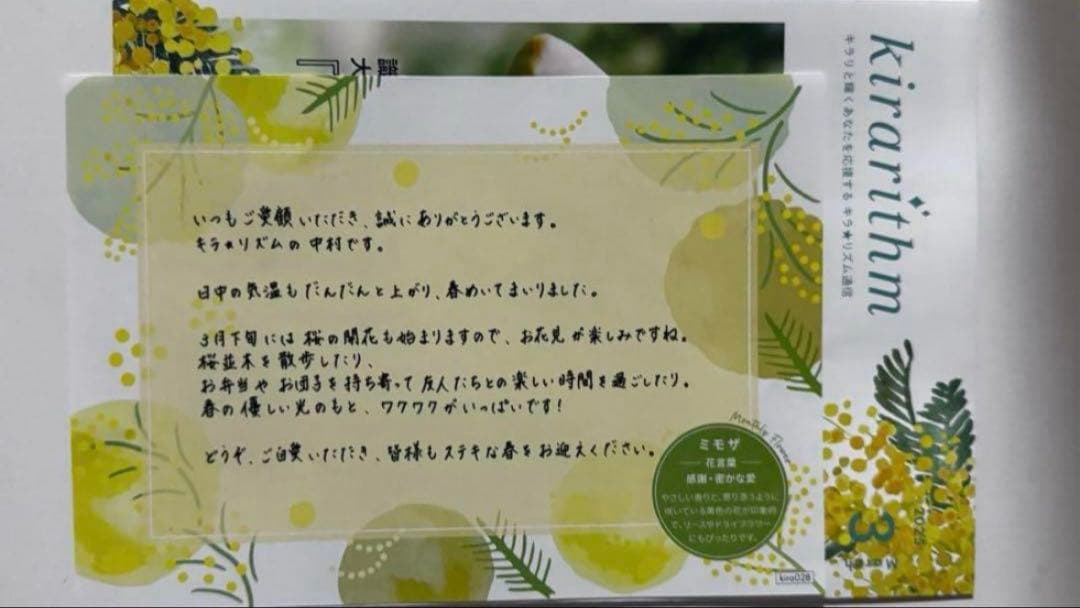 いつもご愛顧いただき、誠にありがとうございます。
キラ★リズムの 中村です。
日中の気温も だんだんと上がり、春めいてまいりました。
3月下旬には 桜の開花も始まりますので、お花見が楽しみですね。
桜並木を散歩したり、
お弁当や お団子を持ち寄って 友人たちとの楽しい時間を過ごしたり。
春の優しい光のもと、ワクワクがいっぱいです!
どうぞ、ご自愛いただき、皆様もステキな春をお迎えください。
Monthly Flower
ミモザ
花言葉
感謝・密かな愛
やさしい香りと、寄り添うように
咲いている黄色の花が印象的
で、リースやドライフラワー
にもぴったりです。
kira028
kirarithm
キラリと輝くあなたを応援する キラ★リズム通信
2025
3
March
大『